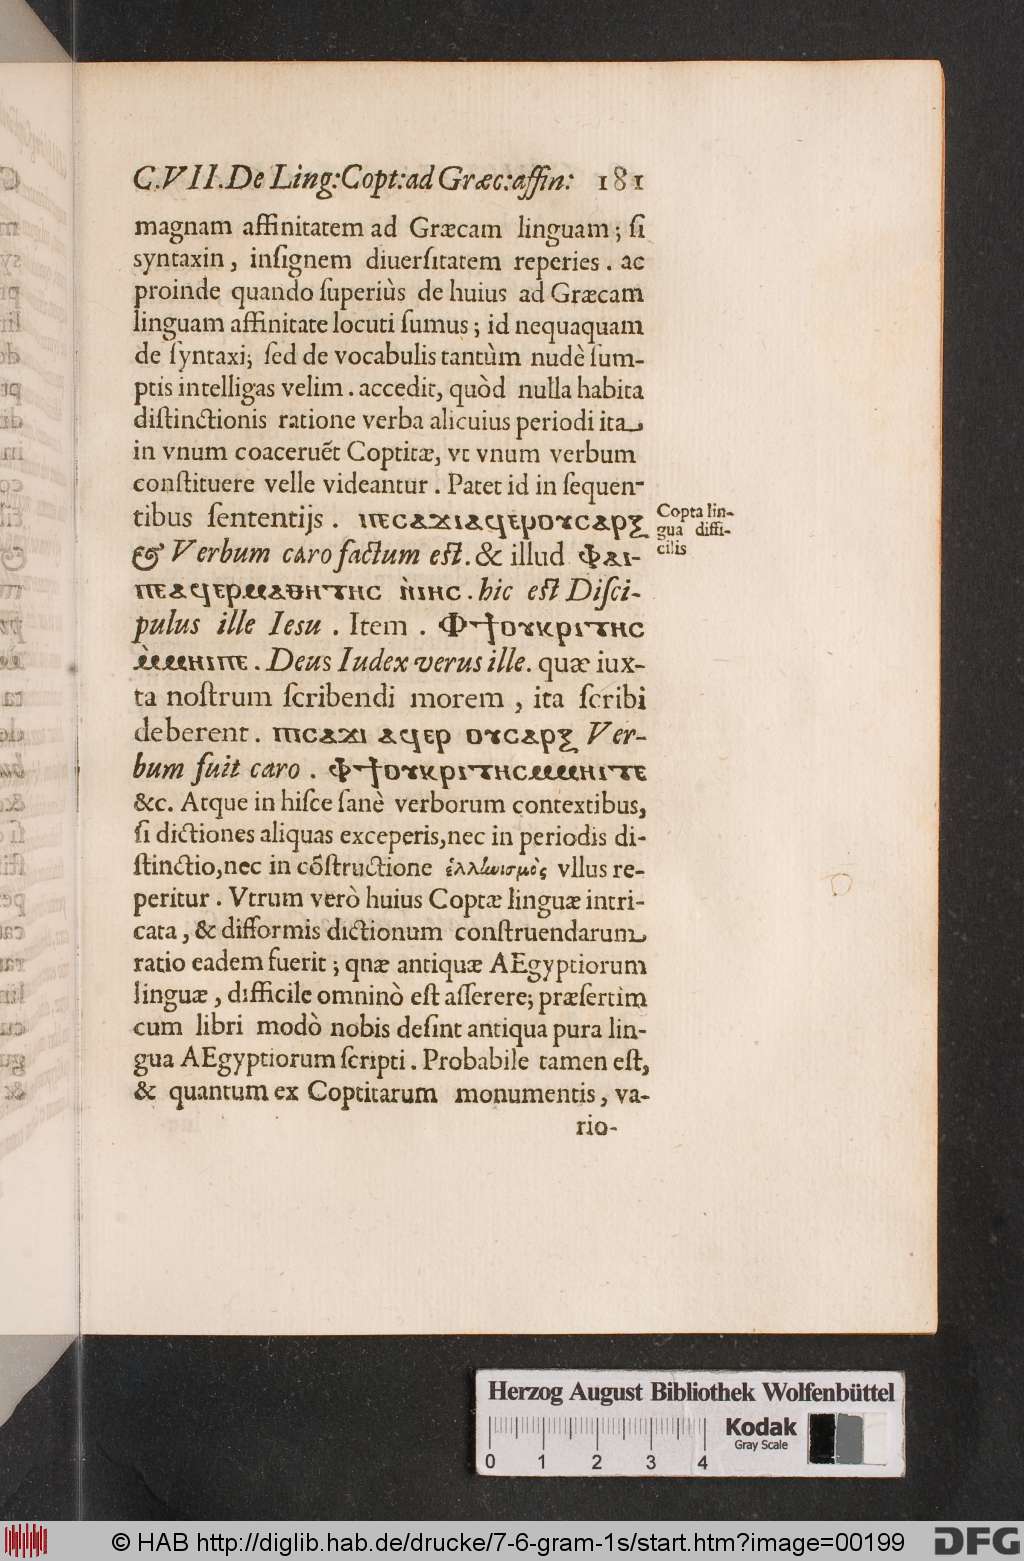 C.VII.De Ling:Copt:ad Græc:affin: 181
magnam affinitatem ad Græcam linguam; ſi
syntaxin, inſignem diuerſitatem reperies. ac
proinde quando ſuperiùs de huius ad Græcam
linguam affinitate locuti ſumus; id nequaquam
de ſyntaxi; ſed de vocabulis tantùm nudè ſum-
ptis intelligas velim. accedit, quòd nulla habita
diſtinctionis ratione verba alicuius periodi ita
in vnum coaceruẽt Coptitæ, vt vnum verbum
conſtituere velle videantur. Patet id in ſequen-
tibus ſententijs. ⲡⲉⲥⲁϫⲓⲁϥⲉⲣⲟⲩⲥⲁⲣⲝ
& Verbum caro factum eſt. & illud ⲫⲁⲓ-
ⲡⲉⲁϥⲉⲣⲙⲁⲑⲏⲧⲏⲥ ⲛ̀ⲓⲏⲥ. hic eſt Diſci-
pulus ille Ieſu. Item. ⲫϯⲟⲩⲕⲣⲓⲧⲏⲥ
ⲙ̀ⲙⲏⲓⲡⲉ. Deus Iudex verus ille. quæ iux-
ta noſtrum ſcribendi morem, ita ſcribi
deberent. ⲡⲓⲥⲁϫⲓ ⲁϥⲉⲣ ⲟⲩⲥⲁⲣⲝ Ver-
bum fuit caro. ⲫϯⲟⲩⲕⲣⲓⲧⲏⲥⲙⲙⲏⲓⲧⲉ
&c. Atque in hiſce ſanè verborum contextibus,
ſi dictiones aliquas exceperis,nec in periodis di-
ſtinctio,nec in cõſtructione ἑλλωισμὸς vllus re-
peritur. Vtrum verò huius Coptæ linguæ intri-
cata, & difformis dictionum conſtruendarum
ratio eadem fuerit; qnæ antiquæ AEgyptiorum
linguæ, difficile omninò eſt aſſerere; præſertim
cum libri modò nobis deſint antiqua pura lin-
gua AEgyptiorum ſcripti. Probabile tamen eſt,
& quantum ex Coptitarum monumentis, va-
rio-
Copta lin-
gua diffi-
cilis
Herzog August Bibliothek Wolfenbüttel
0 1 2 3 4
Kodak
Gray Scale
© HAB http://diglib.hab.de/drucke/7-6-gram-1s/start.htm?image=00199
DFG